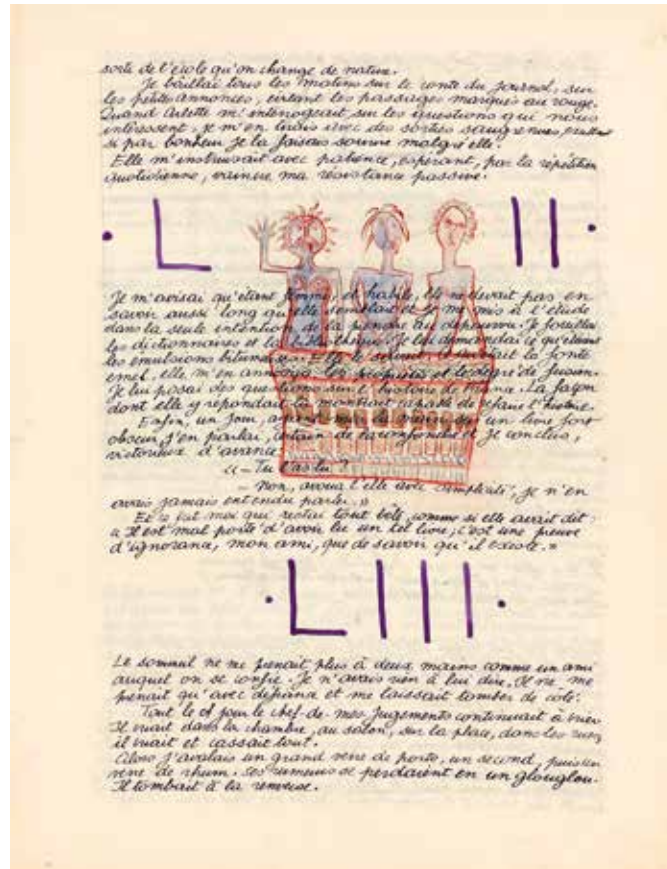 sorte de l'école qu'on change de nature.
Je bâillai tous les matins sur le conte du journal, sur
les petites annonces, évitant les passages marqués au rouge.
Quand Arlette m'interrogeait sur les questions qui nous
intéressent, je m'en tirais avec des sorties saugrenues,
si par bonheur je la faisais sourire malgré elle.
Elle m'instruisait avec patience, espérant, par la répétition
quotidienne, vaincre ma résistance passive.
· L II ·
Je m'avisai qu'étant femme, et habile, elle ne devait pas en
savoir aussi long qu'elle semblait et je me mis à l'étude
dans la seule intention de la prendre au dépourvu. Je fouillai
les dictionnaires et la bibliothèque. Je lui demandai ce qu'étaient
les émulsions bitumeuses. Elle le savait. la fonte
émel. elle m'en annonça les propriétés et le degré de fusion.
Je lui posai des questions sur l'histoire de France. La façon
dont elle y répondait la montrait capable de refaire l'histoire.
Enfin, un jour, ayant mis la main sur un livre fort
obscur, j'en parlai, certain de ta réponse et je conclus,
victorieux d'avance
« – Tu l'as lu ?
– Non, avoua t'elle avec simplicité, je n'en
avais jamais entendu parler. »
Et ce fut moi qui restai tout bête, comme si elle avait dit :
« Il est mal porté d'avoir lu un tel livre ; c'est une preuve
d'ignorance, mon ami, que de savoir qu'il existe. »
· L III ·
Le sommeil ne me prenait plus à deux mains comme un ami
auquel on se confie. Je n'avais rien à lui dire, Il ne me
prenait qu'avec défiance et me laissait tomber de côté.
Tout le jour le chef-de-mes jugements continuait à crier
Il criait dans la chambre, au salon, sur la place, dans les rues
il criait et cassait tout.
Alors j'avalais un grand verre de porto, un second, puis un
verre de rhum. Ses rumeurs se perdaient en un glouglou.
Il tombait à la renverse.